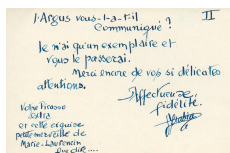 l'Argus vous-l-a-t-il II
Communiqué ?
Je n'ai qu'un exemplaire et
vous le passerai.
Merci encore de vos si délicates
attentions.
Affectueuse
fidélité.
Votre Picasso
extra
et cette exquise
petite merveille de
Marie-Laurencin